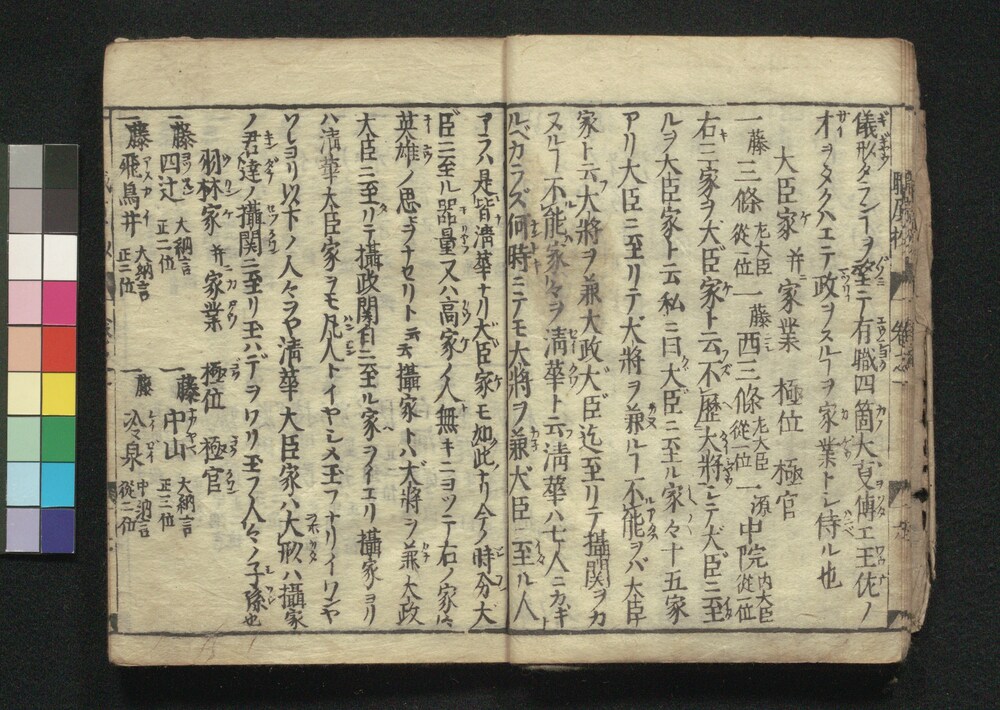 儀形タランヿヲ
有職四箇大夏傅エ王佐ノ
オヲタクハエテ政ヲスルヲ家業トシ侍ル也
大臣家并家業 極位 極官
一藤三條 左大臣 從一位 一藤西三條 左大臣 從一位 一源中院 内大臣 從一位
右三家ヲ大臣家ト云不歴大將シテ大臣ニ至
ルヲ大臣家ト云私ニ曰大臣ニ至ル家々十五家
アリ大臣ニ至リテ大將ヲ兼ルヿ不能ヲバ大臣
家ト云大將ヲ兼大政大臣迄至リテ攝関ヲカ
スルヿ不能家々ヲ清華ト云清華ハ七人ニカギ
ルベカラズ何時ニテモ大將ヲ兼大臣ニ至ル人
アラハ是皆清華ナリ大臣家モ如此ナリ今ノ時分大
臣ニ至ル器量又ハ高家ノ人無キニヨツテ右ノ家
英雄ノ思ヲナセリト云云攝家トハ大將ヲ兼大政
大臣ニ至リテ攝政関白ニ至ル家ヲイエリ攝家ヨリ
ハ清華大臣家ヲモ凡人トイヤシメ玉フナリイワンヤ
ソレヨリ以下ノ人々ヲヤ清華大臣家ハ大形ハ攝家
ノ君達ノ攝関ニ至リ玉ハデヲワリ玉フ人々ノ子孫也
羽林家并家業 極位 極官
一藤四辻 大納言 正二位 一藤中山 大納言 正三位
一藤飛鳥井 大納言 正二位 一藤冷泉 中納言 從二位